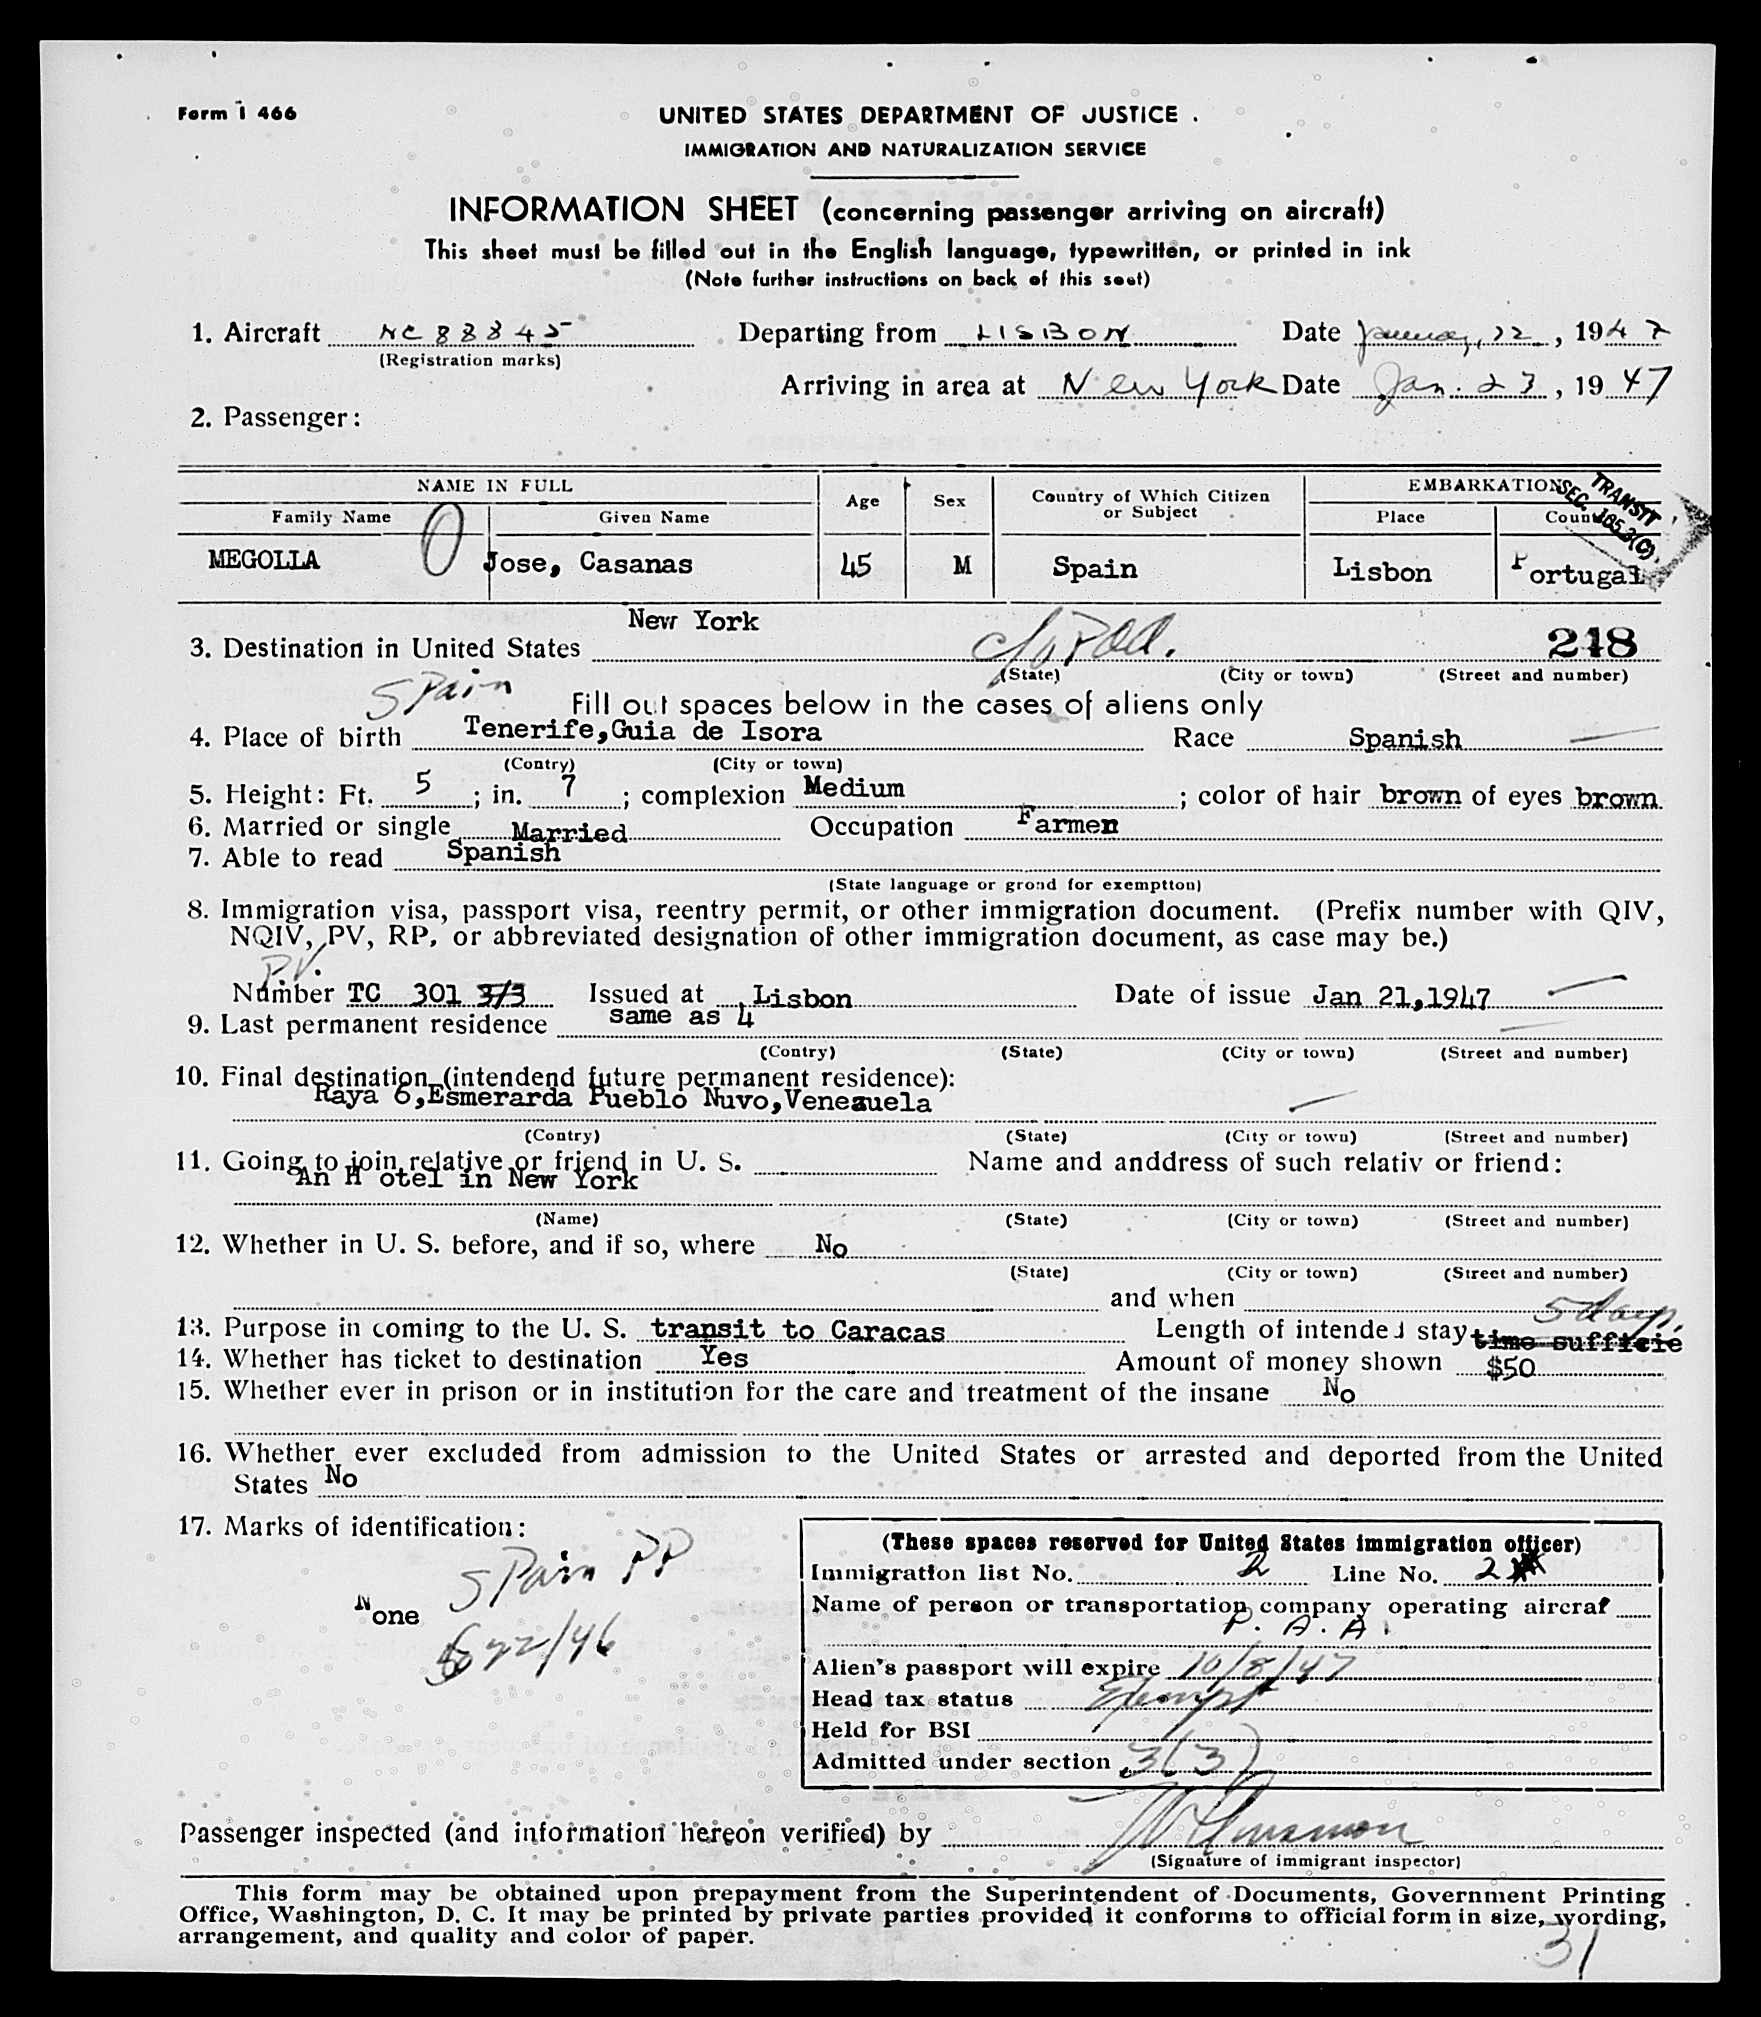 Form I 466
UNITED STATES DEPARTMENT OF JUSTICE
IMMIGRATION AND NATURALIZATION SERVICE
INFORMATION SHEET (concerning passenger arriving on aircraft)
This sheet must be filled out in the English language, typewritten, or printed in ink
(Note further instructions on back of this seet)
1. Aircraft NC 88845 Departing from LISBON Date January, 22, 1947
(Registration marks)
Arriving in area at New York Date Jan. 23, 1947
2. Passenger:
NAME IN FULL Age Sex Country of Which Citizen or Subject EMBARKATION
Family Name Given Name Place Country
TRANSIT
SEC. 165.3(C)
MEGOLLA 0 Jose, Casanas 45 M Spain Lisbon Portugal
New York
3. Destination in United States 248
(State) (City or town) (Street and number)
Spain
Fill out spaces below in the cases of aliens only
4. Place of birth Tenerife,Guia de Isora Race Spanish
(Contry) (City or town)
5. Height: Ft. 5; in. 7; complexion Medium; color of hair brown of eyes brown
6. Married or single Married Occupation Farmer
7. Able to read Spanish
(State language or grond for exemptton)
8. Immigration visa, passport visa, reentry permit, or other immigration document. (Prefix number with QIV,
NQIV, PV, RP, or abbreviated designation of other immigration document, as case may be.)
P.V.
Number TC 301 3/3 Issued at Lisbon Date of issue Jan 21,1947
9. Last permanent residence same as 4
(Contry) (State) (City or town) (Street and number)
10. Final destination (intendend future permanent residence):
Raya 6,Esmerarda Pueblo Nuvo,Venezuela
(Contry) (State) (City or town) (Street and number)
11. Going to join relative or friend in U. S. Name and anddress of such relativ or friend:
An H otel in New York
(Name) (State) (City or town) (Street and number)
12. Whether in U. S. before, and if so, where No
(State) (City or town) (Street and number)
and when
5 days.
13. Purpose in coming to the U. S. transit to Caracas Length of intended stay time sufficie
14. Whether has ticket to destination Yes Amount of money shown $50
15. Whether ever in prison or in institution for the care and treatment of the insane No
16. Whether ever excluded from admission to the United States or arrested and deported from the United
States No
17. Marks of identification:
Spain PP
None
(These spaces reserved for United States immigration officer)
Immigration list No. 2 Line No. 2
Name of person or transportation company operating aircraf
P. A. A.
Alien's passport will expire 10/8/47
Head tax status Exempt
Held for BSI
Admitted under section 3(3)
Passenger inspected (and information hereon verified) by
(Signature of immigrant inspector)
This form may be obtained upon prepayment from the Superintendent of Documents, Government Printing
Office, Washington, D. C. It may be printed by private parties provided it conforms to official form in size, wording,
arrangement, and quality and color of paper.
31